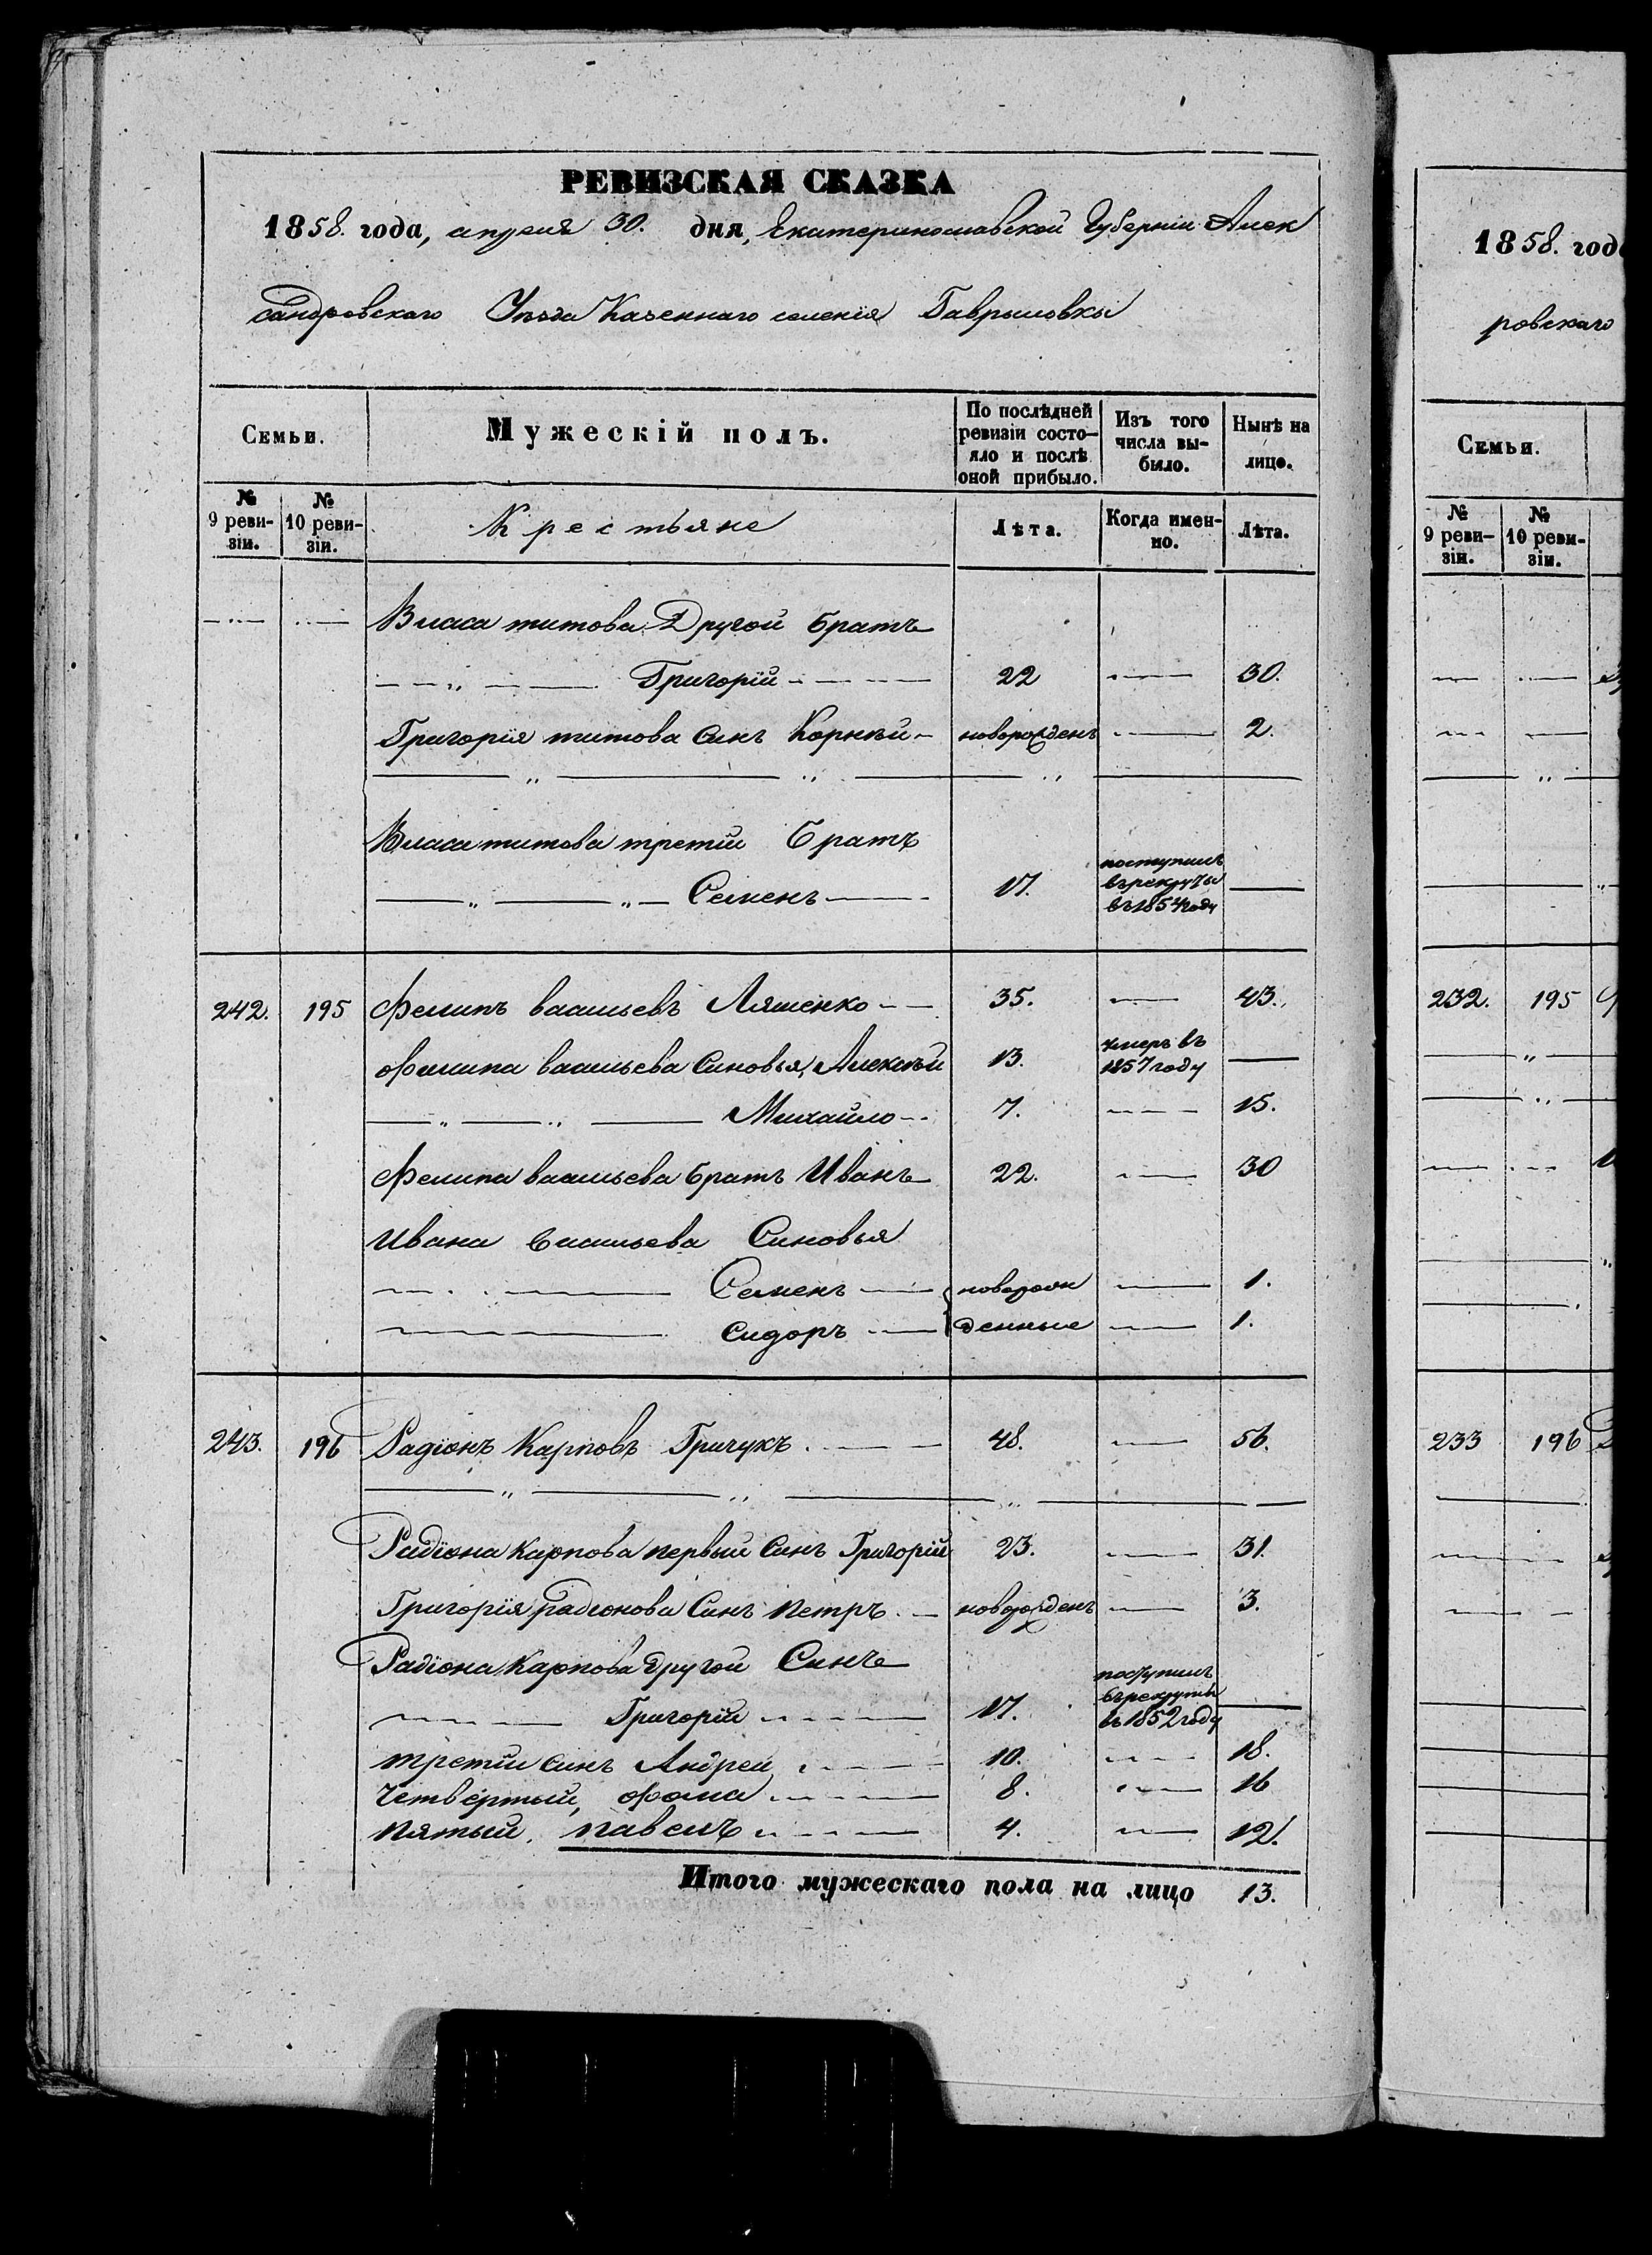 РЕВИЗСКАЯ СКАЗКА
1858. года, апреля 30. дня, Екатеринославской Губерніи Алек
сандровскаго Уѣзда Казеннаго селенія Гаврыловки
Семьи.
Мужескій полъ.
По послѣдней ревизіи состо-
яло и послѣ оной прибыло.
Изъ того числа вы-
было.
Нынѣ на лицо.
№ 9 реви-зіи.
№ 10 реви-зіи.
Крестьяне
Лѣта.
Когда имен-но.
Лѣта.
Власа титова Другой братъ
Григорій 22 30.
Григорія титова Синъ Корнѣй новорожденъ 2.
Власа титова третій Братъ
Семенъ 17. поступилъ
въ рекруты
въ 1854 году
242. 195 Филипъ васильевъ Ляшенко 35. 43.
Филипа васильева Синовья, Алексѣй 13. умеръ въ
1857 году
Михайло 7. 15.
Филипа васильева братъ Иванъ 22. 30
Ивана васильева Синовья
Семенъ новорож 1.
Сидоръ денные 1.
243. 196 Радіонъ Карповъ Гричукъ 48. 56.
Радіона Карпова первый Синъ Григорій 23. 31.
Григорія радіонова Синъ Петръ новорожденъ 3.
Радіона Карпова другой Синъ
Григорій 17. поступилъ
въ рекруты
въ 1852 году
третій синъ Андрей 10. 18.
Четвертый, Фома 8. 16
Пятый, павелъ 4. 12.
Итого мужескаго пола на лицо 13.
1858. год
ровскаго
Семьи.
№ 9 реви-зіи.
№ 10 реви-зіи.
232. 195
233 196